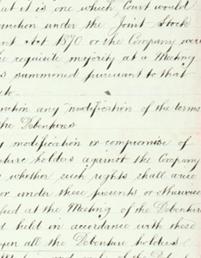 at it is one which Court would
nction under the Joint Stock
nt Act 1870 or the Company were
e requisite majority at a Meeting
s summoned pursuant to that
ct.
nction any modification of the terms
the Debentures
y modification or compromise of
ture holders against the Company
whether such rights shall arise
or under these presents or otherwise
fied at the Meeting of the Debenture
d held in accordance with these
upon all the Debenture holders